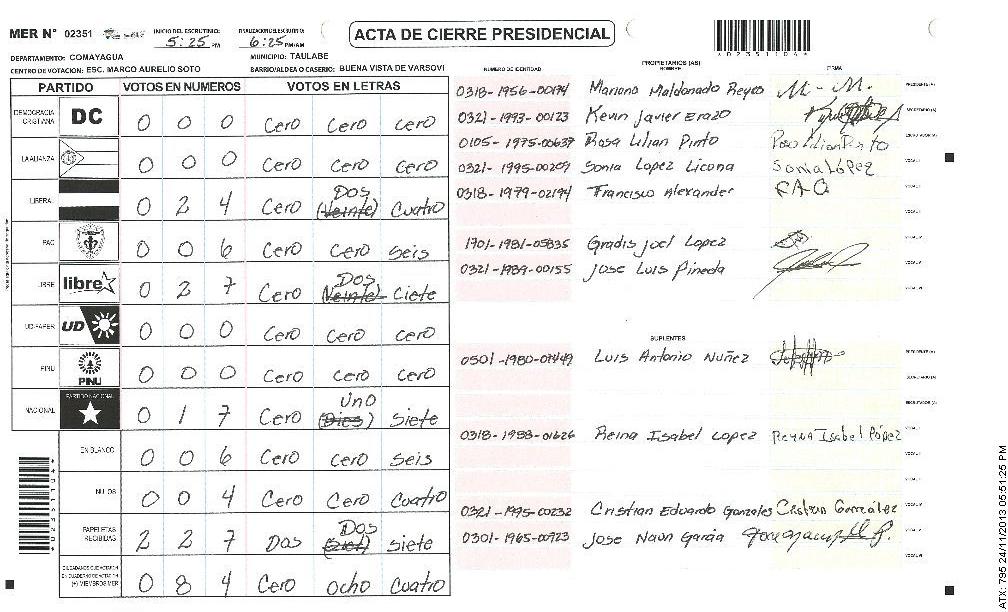 MER N° 02351 INICIO DEL ESCRUTINIO: 5:25 PM FINALIZACION DEL ESCRUTINIO: 6:25 PM/AM ACTA DE CIERRE PRESIDENCIAL
DEPARTAMENTO: COMAYAGUA MUNICIPIO: TAULABE
CENTRO DE VOTACION: ESC. MARCO AURELIO SOTO BARRIO/ALDEA O CASERIO: BUENA VISTA DE VARSOVI
PARTIDO VOTOS EN NUMEROS VOTOS EN LETRAS
DEMOCRACIA CRISTIANA DC 0 0 0 Cero Cero Cero
LA ALIANZA 0 0 0 Cero Cero Cero
LIBERAL 0 2 4 Cero Dos (Veinte) Cuatro
PAC 0 0 6 Cero Cero Seis
LIBRE libre 0 2 7 Cero Dos (Veinte) Ciete
UD-FAPER UD 0 0 0 Cero Cero Cero
PINU PINU 0 0 0 Cero Cero Cero
NACIONAL PARTIDO NACIONAL 0 1 7 Cero Uno (Dies) Siete
EN BLANCO 0 0 6 Cero Cero Seis
NULOS 0 0 4 Cero Cero Cuatro
PAPELETAS RECIBIDAS 2 2 7 Dos Dos Siete
CIUDADANOS QUE VOTARON EN CUADERNO DE VOTACION (+) MIEMBROS MER 0 8 4 Cero Ocho Cuatro
*02351104*
NUMERO DE IDENTIDAD PROPIETARIOS (AS) NOMBRE FIRMA
0318-1956-00194 Mariano Maldonado Reyes M-M. PRESIDENTE (A)
0321-1993-00123 Kevin Javier Erazo SECRETARIO (A)
0105-1975-00637 Rosa Lilian Pinto ESCRUTADOR (A)
0321-1995-00209 Sonia Lopez Licona Sonia López VOCAL I
0318-1979-02194 Francisco Alexander VOCAL II
VOCAL III
1701-1981-05835 Gradis Joel Lopez VOCAL IV
0321-1989-00155 Jose Luis Pineda VOCAL V
VOCAL VI
SUPLENTES
0501-1980-01449 Luis Antonio Nuñez PRESIDENTE (A)
SECRETARIO (A)
ESCRUTADOR (A)
0318-1988-01626 Reina Isabel Lopez Reyna Isabel López VOCAL I
0321-1995-00232 Cristian Eduardo Gonzales Cristian González
0301-1965-00723 Jose Naun Garcia
ATX: 795 24/11/2013 05:51:25 PM